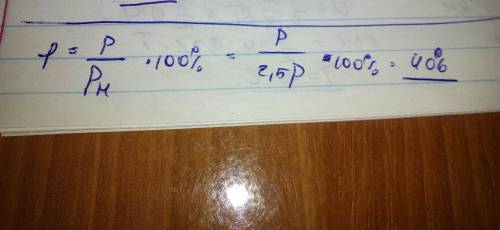 φ = P / Pн · 100% = P / 2,5P · 100% = 40%